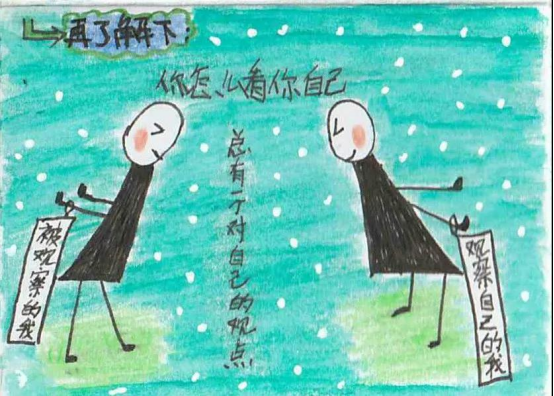 再了解下：
你怎么看你自己
总有一个对自己的观点
被观察的我
观察自己的我